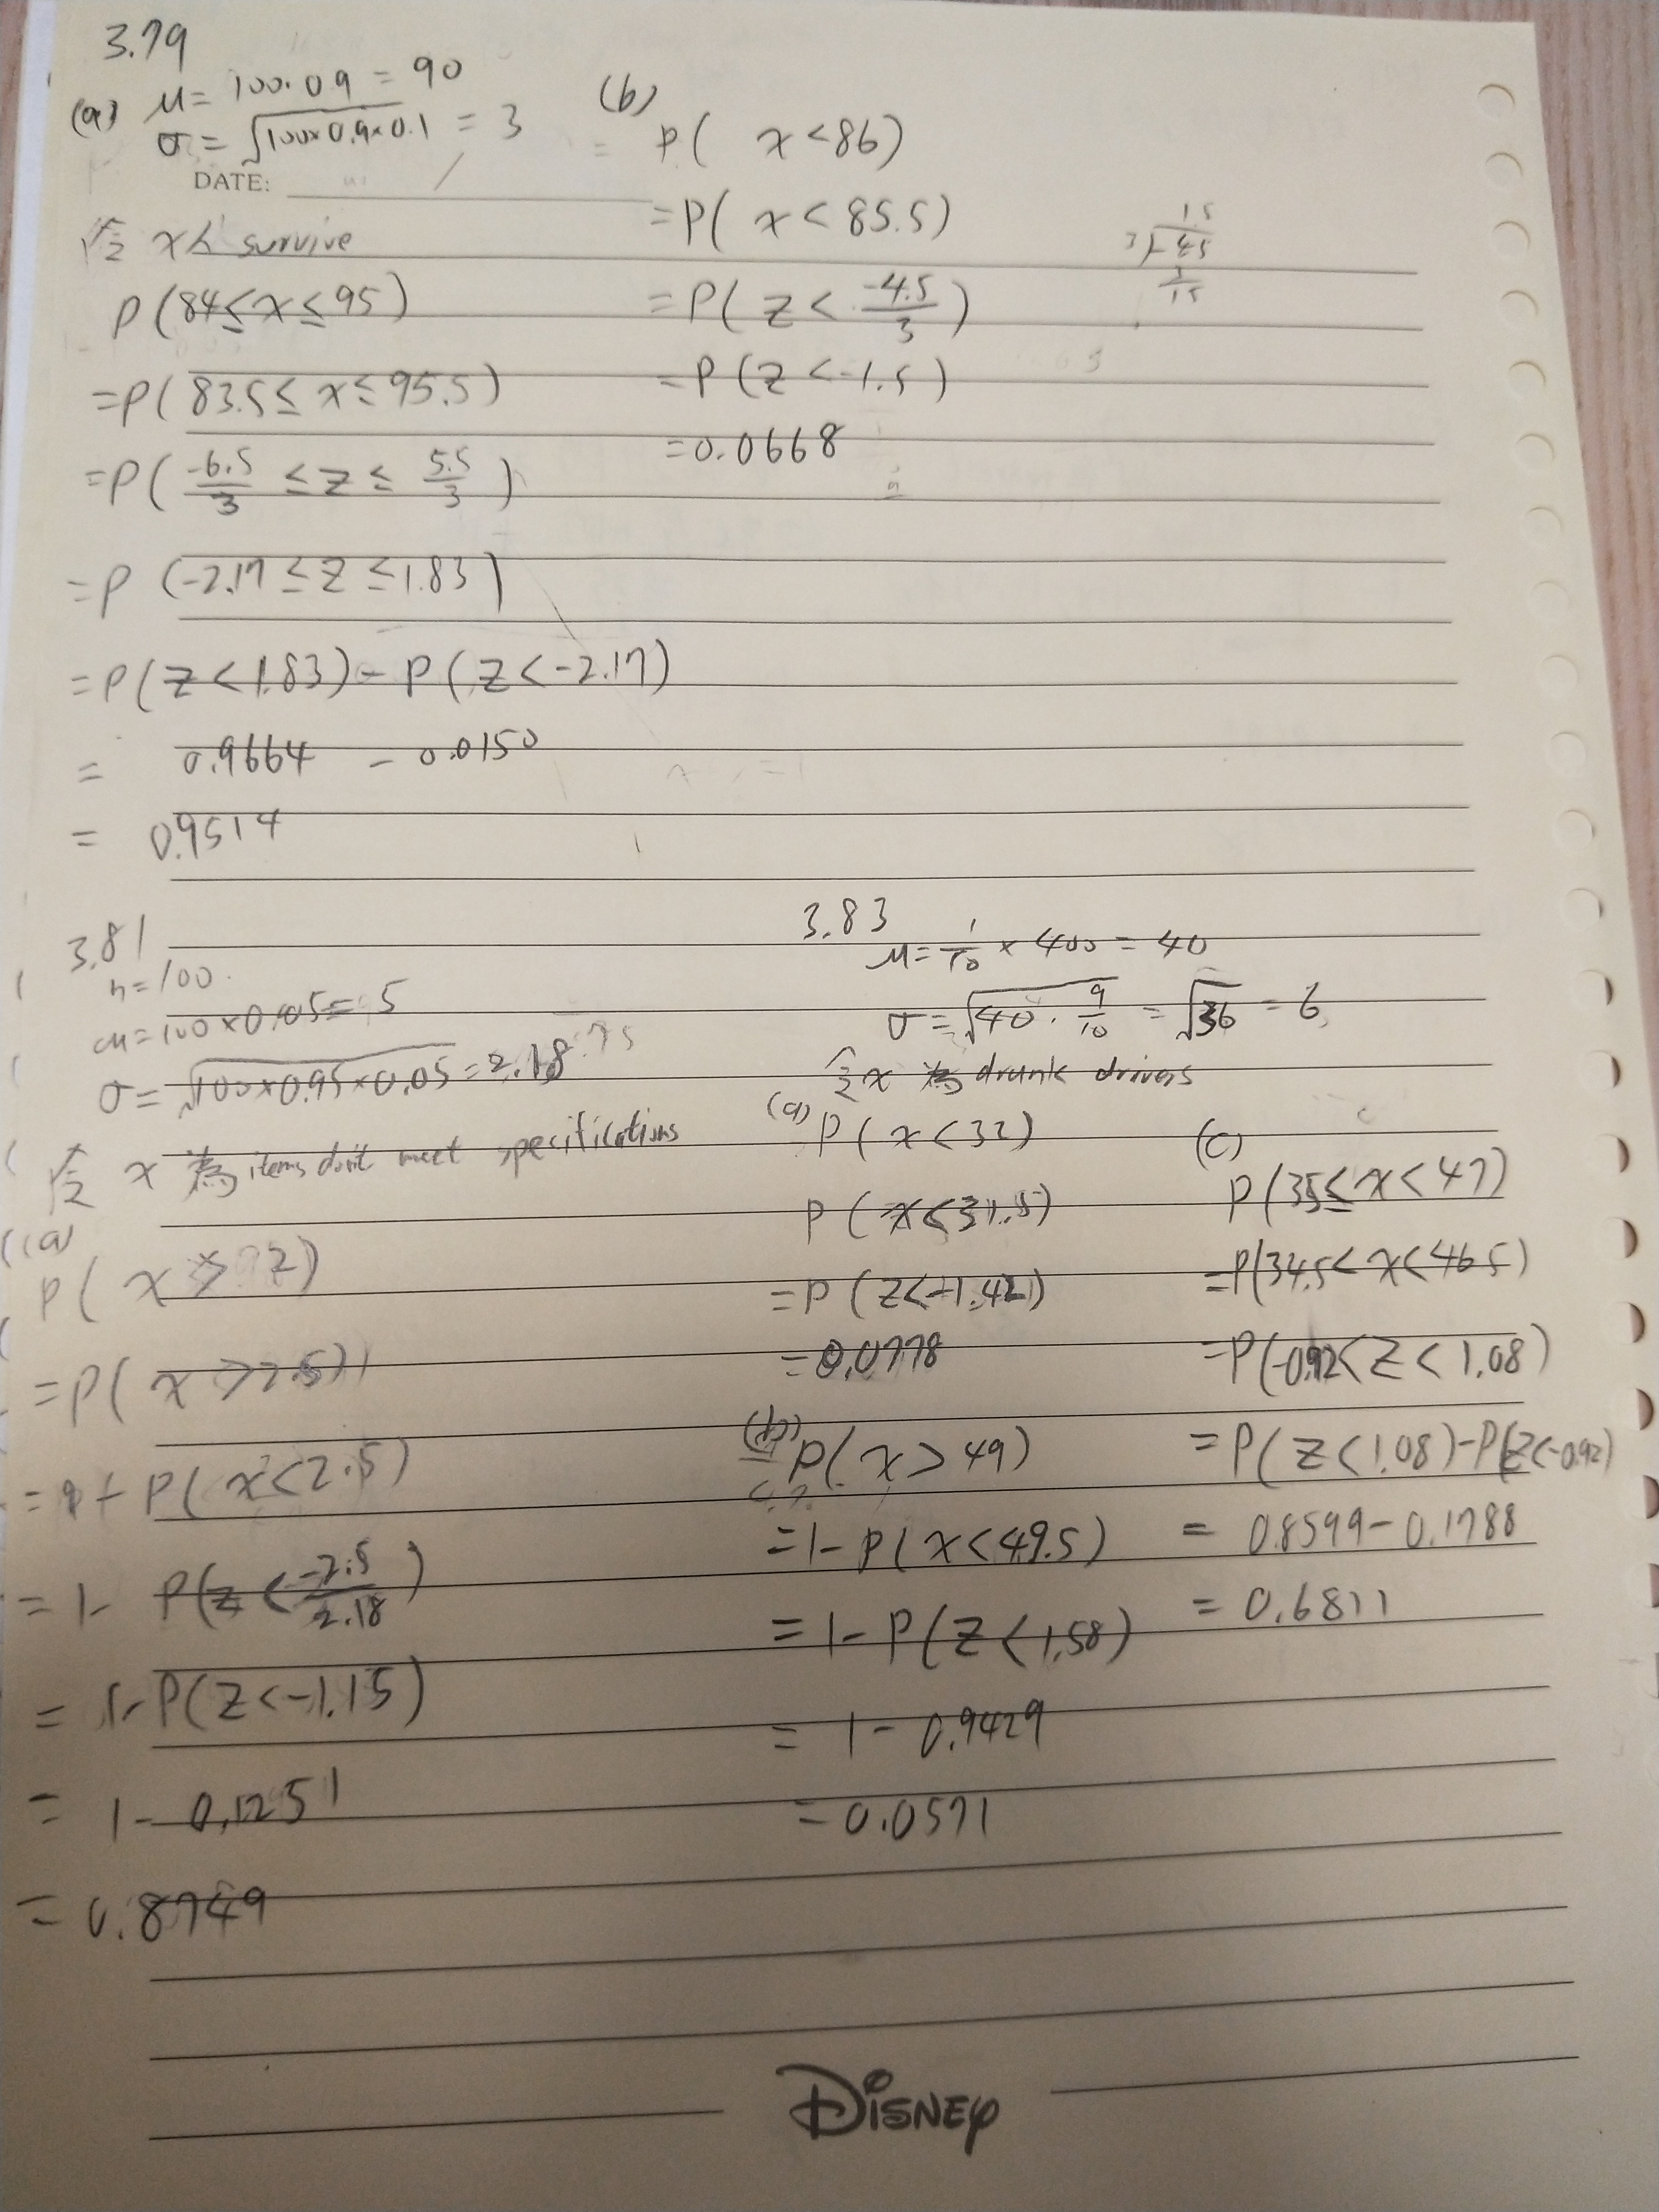 3.79
(a) μ = 100·0.9 = 90
σ = √100×0.9×0.1 = 3
DATE:
令 x人 survive
P(84≤x≤95)
=P(83.5≤x≤95.5)
=P(-6.5/3 ≤ Z ≤ 5.5/3)
=P(-2.17≤Z≤1.83)
=P(Z<1.83)-P(Z<-2.17)
= 0.9664 - 0.0150
= 0.9514
(b)
P( x<86)
=P( x<85.5)
=P( Z< -4.5/3)
=P(Z<-1.5)
=0.0668
15
3)45
3
15
3.81
n=100
μ=100×0.05=5
σ=√100×0.95×0.05=2.18
令 x 為 items don't meet specifications
(a)
P( x > 2)
=P( x >2.5)
=1-P(x<2.5)
=1-P(Z<-2.5/2.18)
=1-P(Z<-1.15)
=1-0.1251
=0.8749
3.83
μ=1/10×400=40
σ=√40·9/10=√36=6
令x 為 drunk drivers
(a) P(x<32)
P(x<31.5)
=P(Z<-1.42)
=0.0778
(b) P(x>49)
=1-P(x<49.5)
=1-P(Z<1.58)
=1-0.9429
=0.0571
(c)
P(35≤x<47)
=P(34.5<x<46.5)
=P(-0.92<Z<1.08)
=P(Z<1.08)-P(Z<-0.92)
=0.8599-0.1788
=0.6811
DISNEY